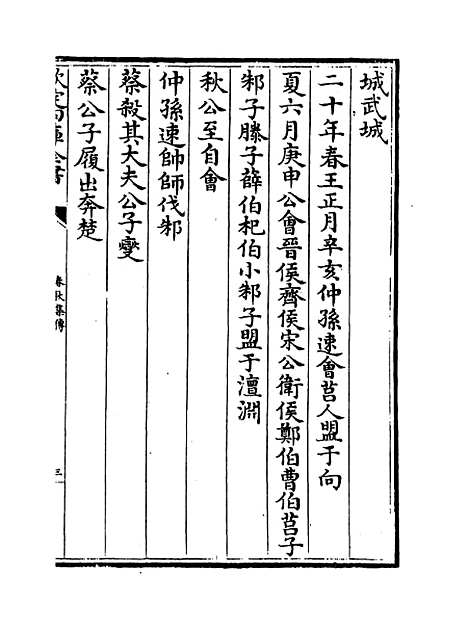 城武城
二十年春王正月辛亥仲孫速會莒人盟于向
夏六月庚申公會晉侯齊侯宋公衛侯鄭伯曹伯莒子
邾子滕子薛伯杞伯小邾子盟于澶淵
秋公至自會
仲孫速帥師伐邾
蔡殺其大夫公子燮
蔡公子履出奔楚
欽定四庫全書
春秋集傳